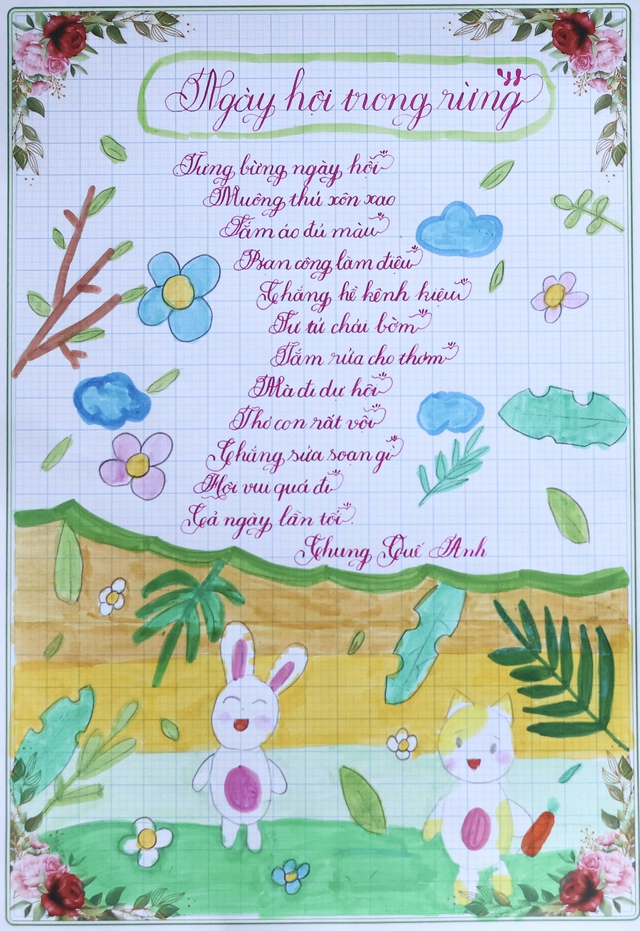 Ngày hội trong rừng
Tưng bừng ngày hội
Muông thú xôn xao
Tấm áo đủ màu
Bạn công làm điệu
Chẳng hề kênh kiệu
Sư tử chải bờm
Tắm rửa cho thơm
Mà đi dự hội
Thỏ con rất vội
Chẳng sửa soạn gì
Hội vui quá đi
Cả ngày lần tới.
Chung Quế Anh